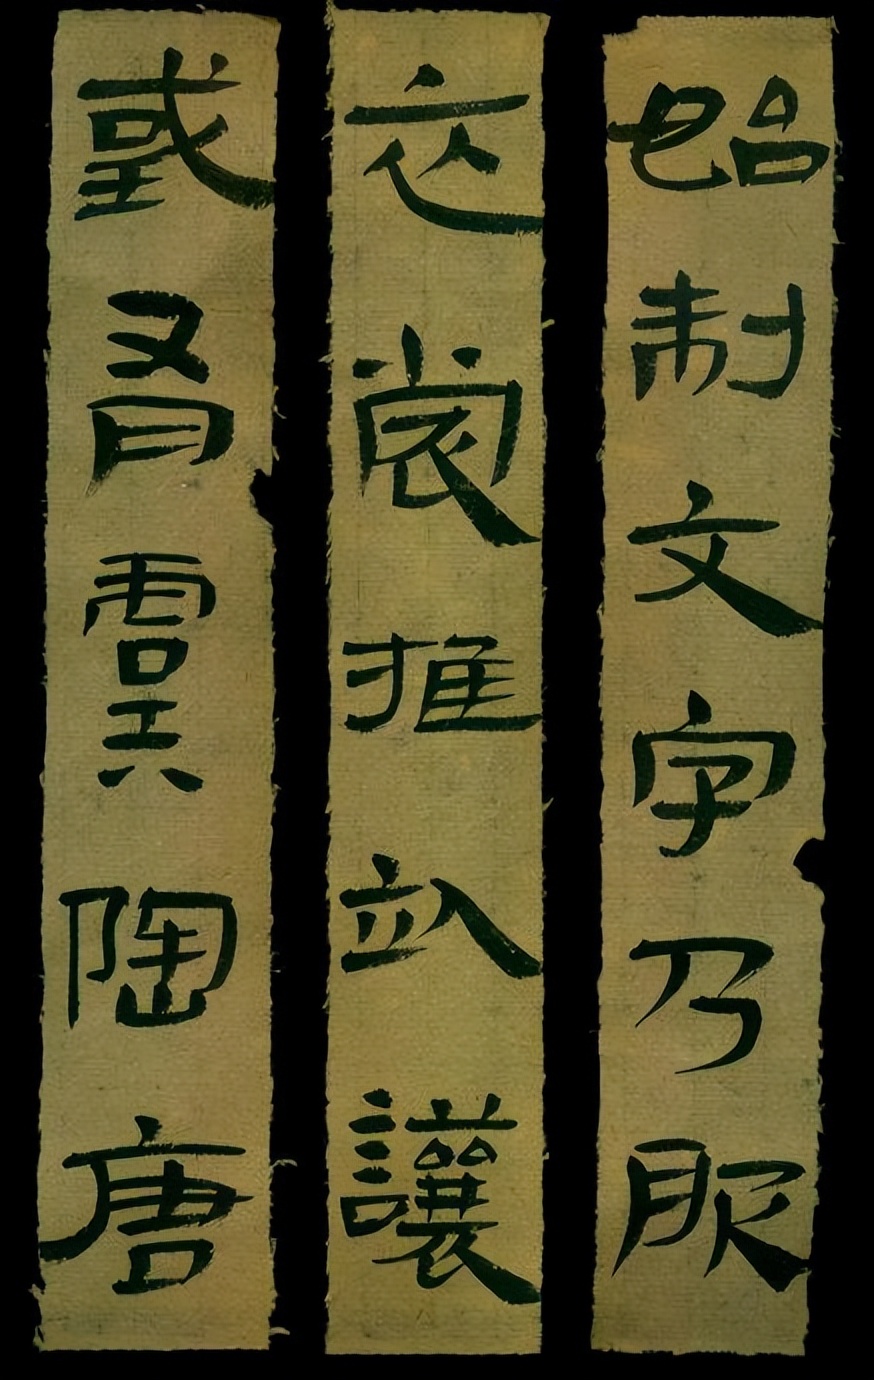 始制文字乃服
衣裳推位讓
國有虞陶唐